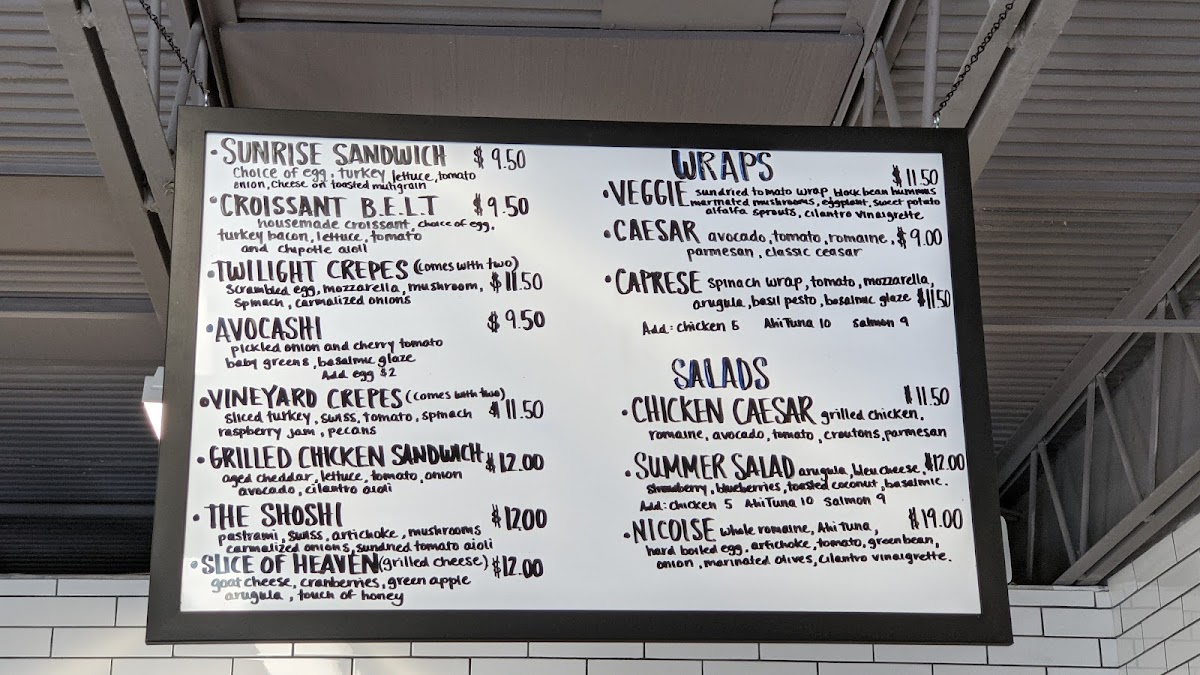 •SUNRISE SANDWICH $9.50
Choice of egg, turkey, lettuce, tomato
onion, cheese on toasted multigrain
•CROISSANT B.E.L.T $9.50
housemade croissant, choice of egg,
turkey bacon, lettuce, tomato
and chipotle aioli
•TWILIGHT CREPES (comes with two)
Scrambled egg, mozzarella, mushroom, $11.50
spinach, carmalized onions
•AVOCASHI $9.50
pickled onion and cherry tomato
baby greens, basalmic glaze
Add egg $2
•VINEYARD CREPES (comes with two)
sliced turkey, swiss, tomato, spinach $11.50
raspberry jam, pecans
•GRILLED CHICKEN SANDWICH $12.00
aged cheddar, lettuce, tomato, onion
avocado, cilantro aioli
•THE SHOSHI $12.00
pastrami, swiss, artichoke, mushrooms
carmalized onions, sundried tomato aioli
•SLICE OF HEAVEN (grilled cheese) $12.00
goat cheese, cranberries, green apple
arugula, touch of honey
WRAPS
$11.50
•VEGGIE sundried tomato wrap, black bean hummus
marinated mushrooms, eggplant, sweet potato
alfalfa sprouts, cilantro vinaigrette
•CAESAR avocado, tomato, romaine, $9.00
parmesan, classic ceasar
•CAPRESE spinach wrap, tomato, mozzarella,
arugula, basil pesto, basalmic glaze $11.50
Add: chicken 5 Ahi Tuna 10 Salmon 9
SALADS
$11.50
•CHICKEN CAESAR grilled chicken,
romaine, avocado, tomato, croutons, parmesan
•SUMMER SALAD arugula, bleu cheese, $12.00
strawberry, blueberries, toasted coconut, basalmic.
Add: chicken 5 Ahi Tuna 10 Salmon 9
•NICOISE whole romaine, Ahi Tuna, $19.00
hard boiled egg, artichoke, tomato, green bean,
onion, marinated olives, cilantro vinaigrette.